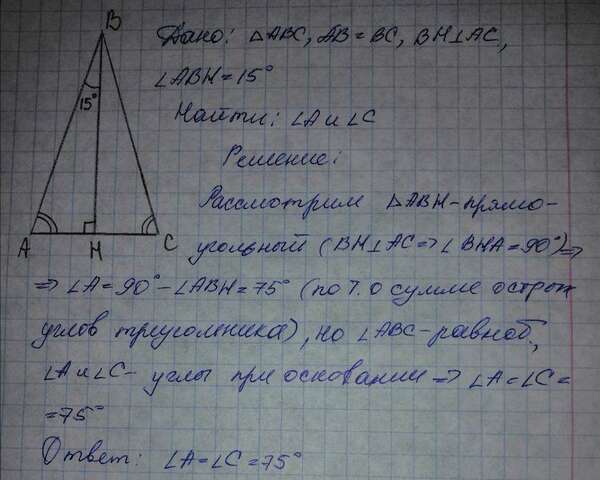 B
15°
A
H
C
Дано: △ABC, AB = BC, BH⊥AC,
∠ABH = 15°
Найти: ∠A и ∠C
Решение:
Рассмотрим △ABH - прямо-
угольный (BH⊥AC => ∠BHA = 90°) =>
=> ∠A = 90° - ∠ABH = 75° (по т. о сумме острых
углов треуголника), но ∠ABC - равноб.,
∠A и ∠C - углы при основании => ∠A = ∠C =
= 75°
Ответ: ∠A = ∠C = 75°